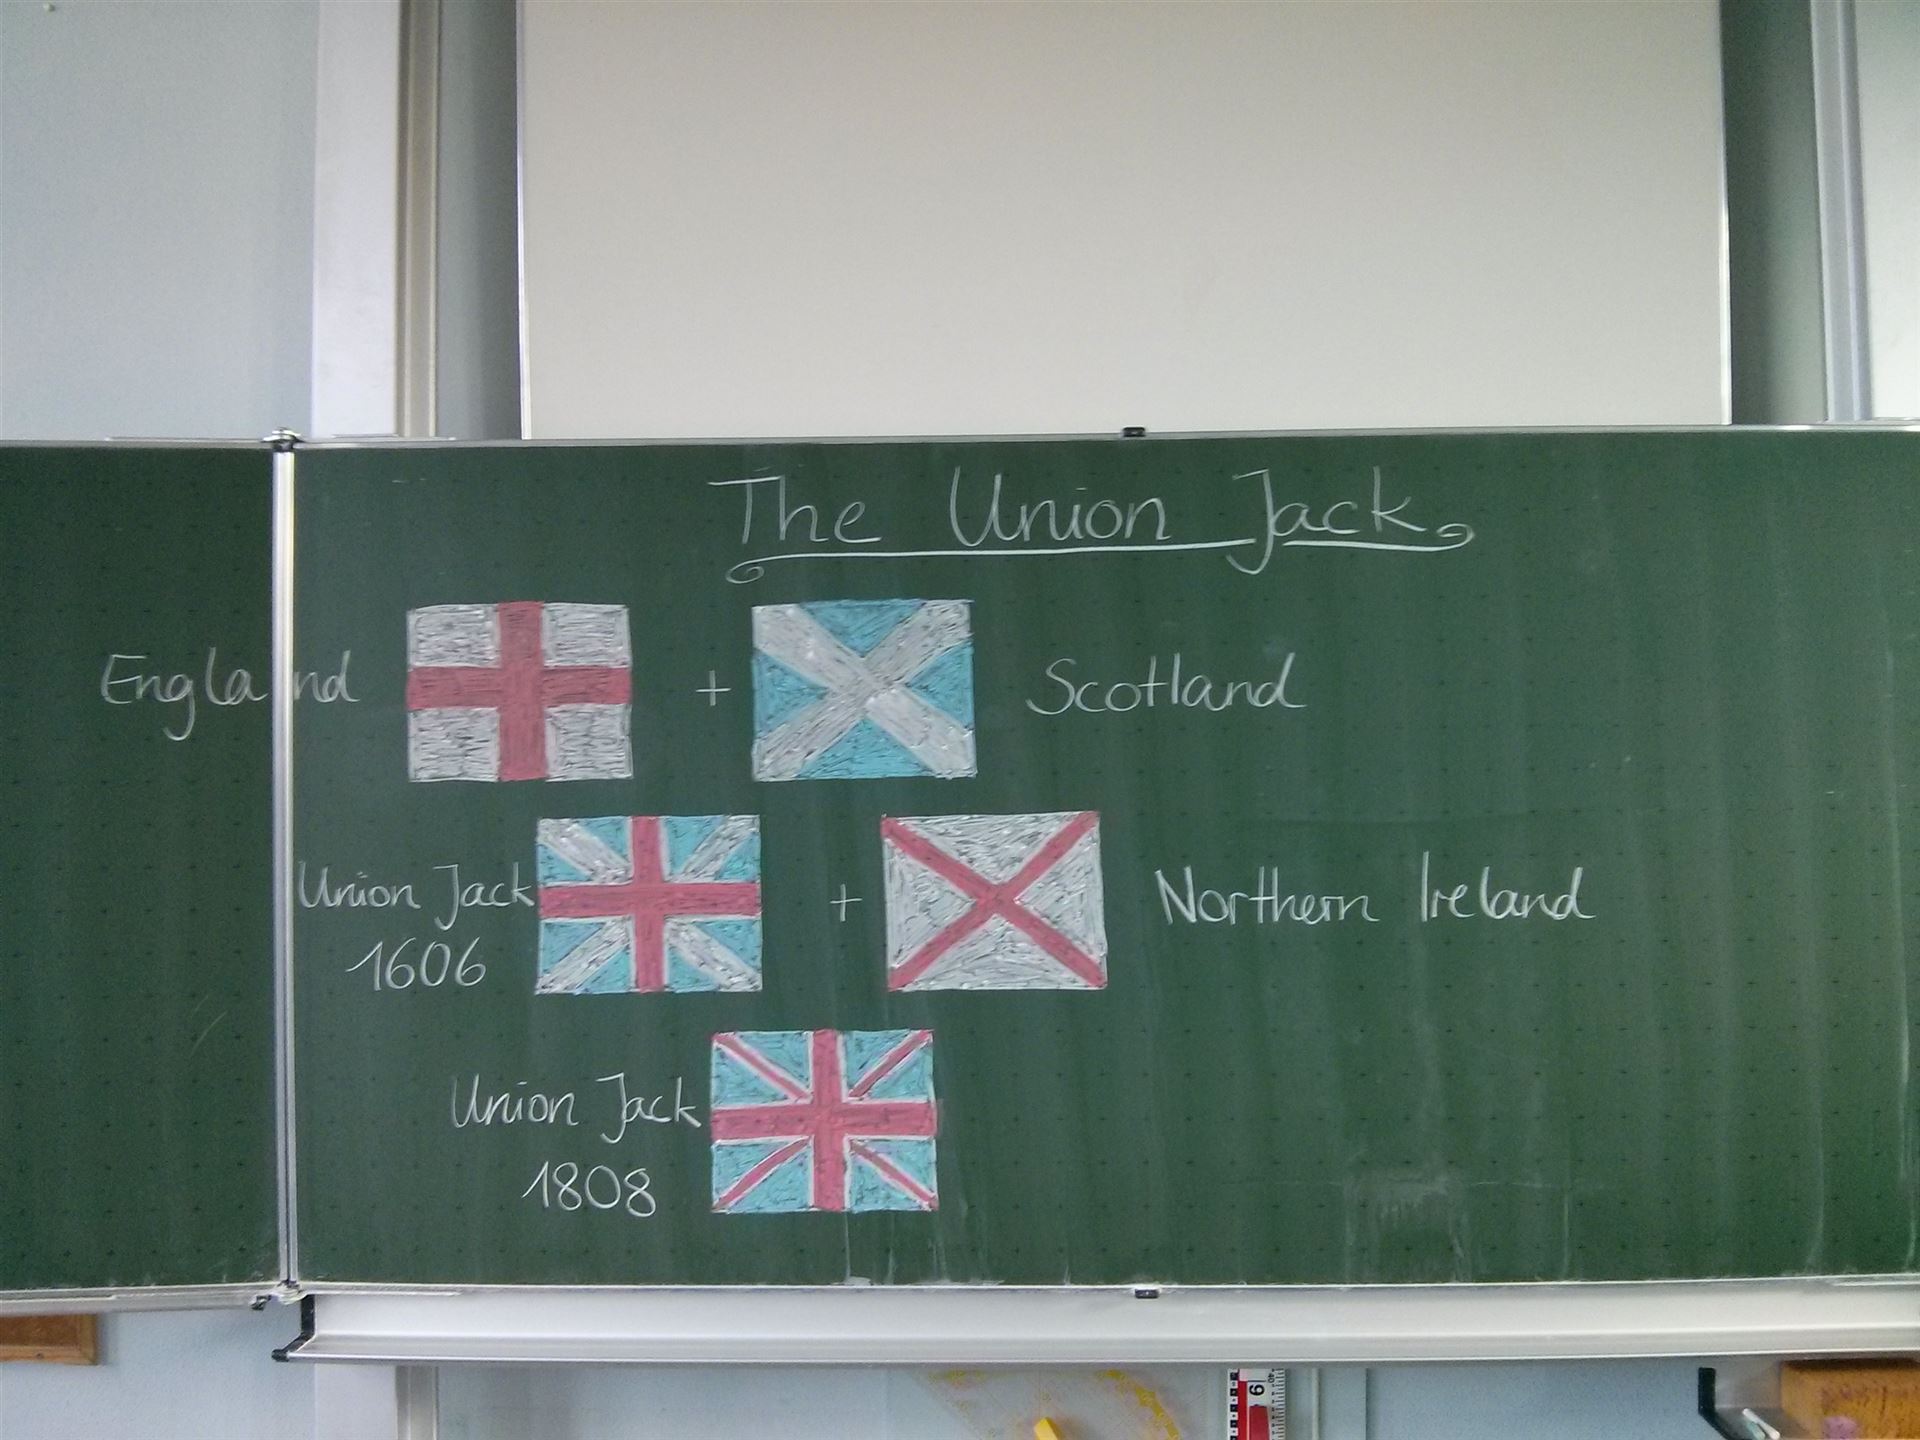 The Union Jack
England + Scotland
Union Jack + Northern Ireland
1606
Union Jack
1808
9